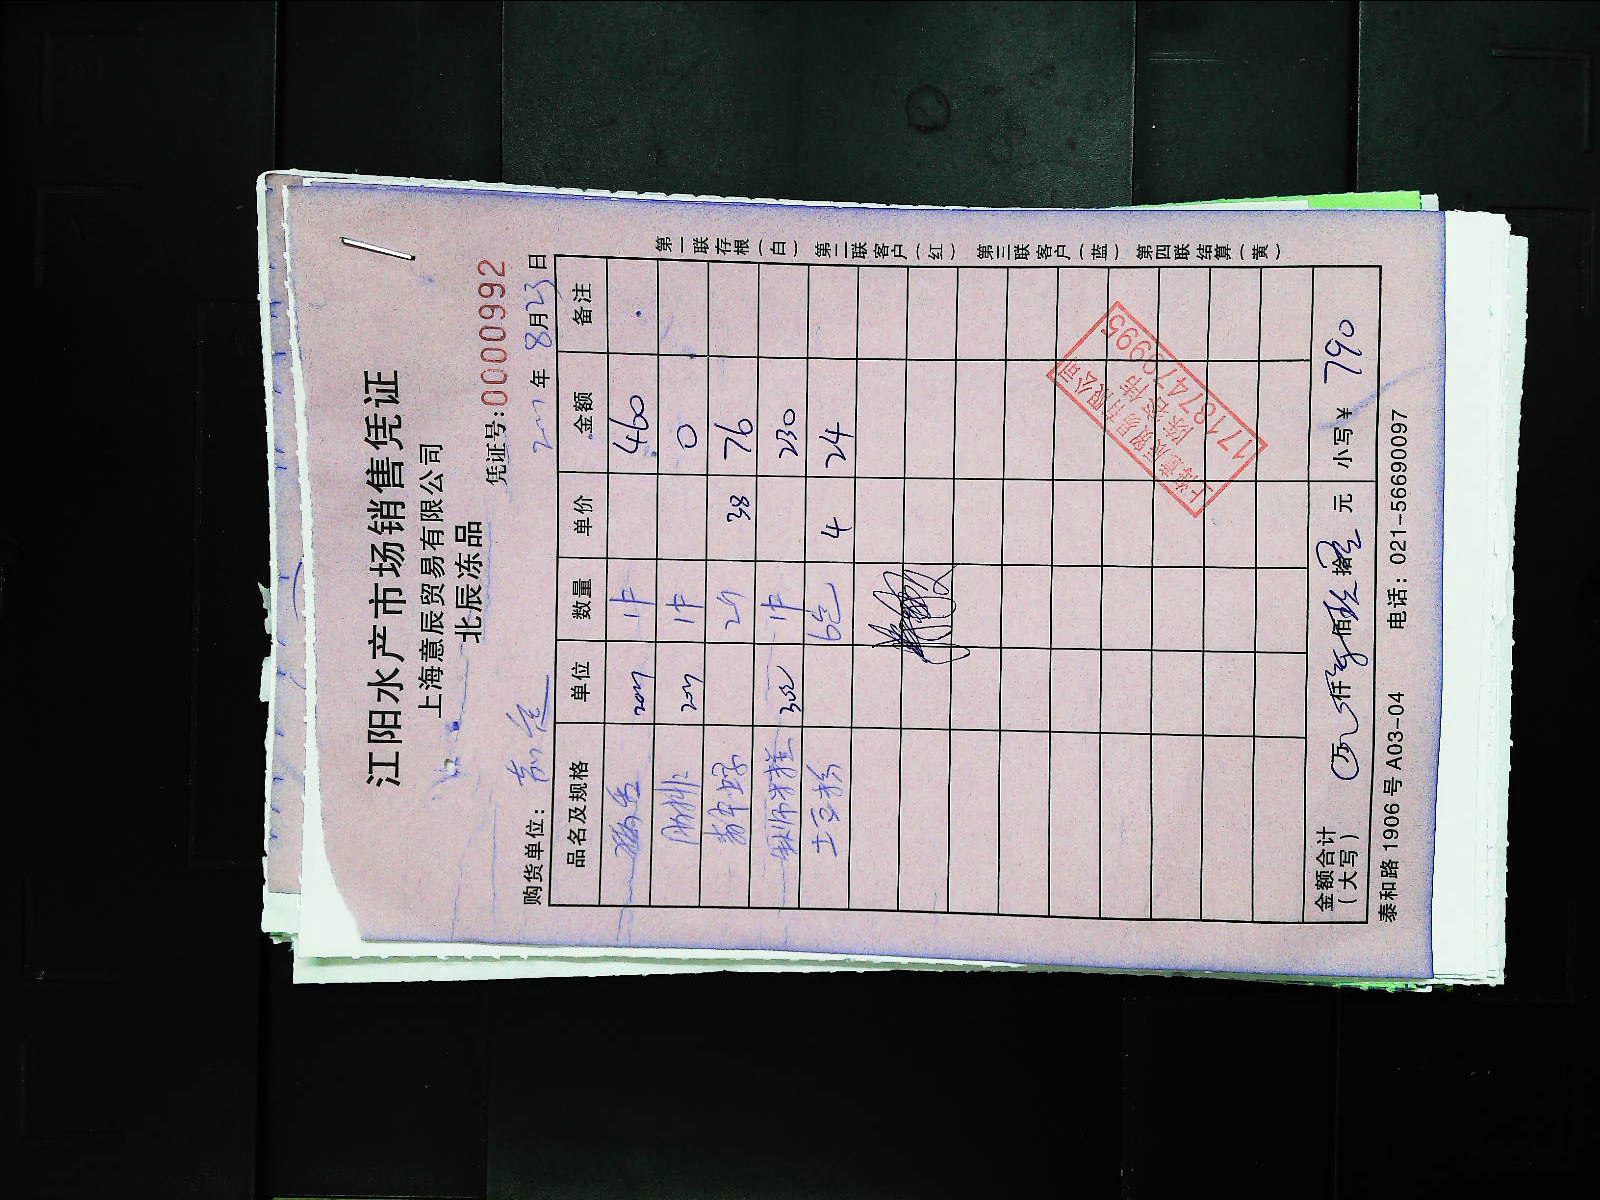 江阳水产市场销售凭证
上海意辰贸易有限公司
北辰冻品
凭证号:0000992
购货单位: 年 8月23日
品名及规格 单位 数量 单价 金额 备注
1件 460
1件 0
38 76
1件 230
土豆粉 6包 4 24
上海意辰贸易有限公司
17187479995
金额合计(大写) 万 仟 佰 拾 元 小写¥ 790
泰和路1906号A03-04 电话:021-56690097
第一联存根(白) 第二联客户(红) 第三联客户(蓝) 第四联结算(黄)